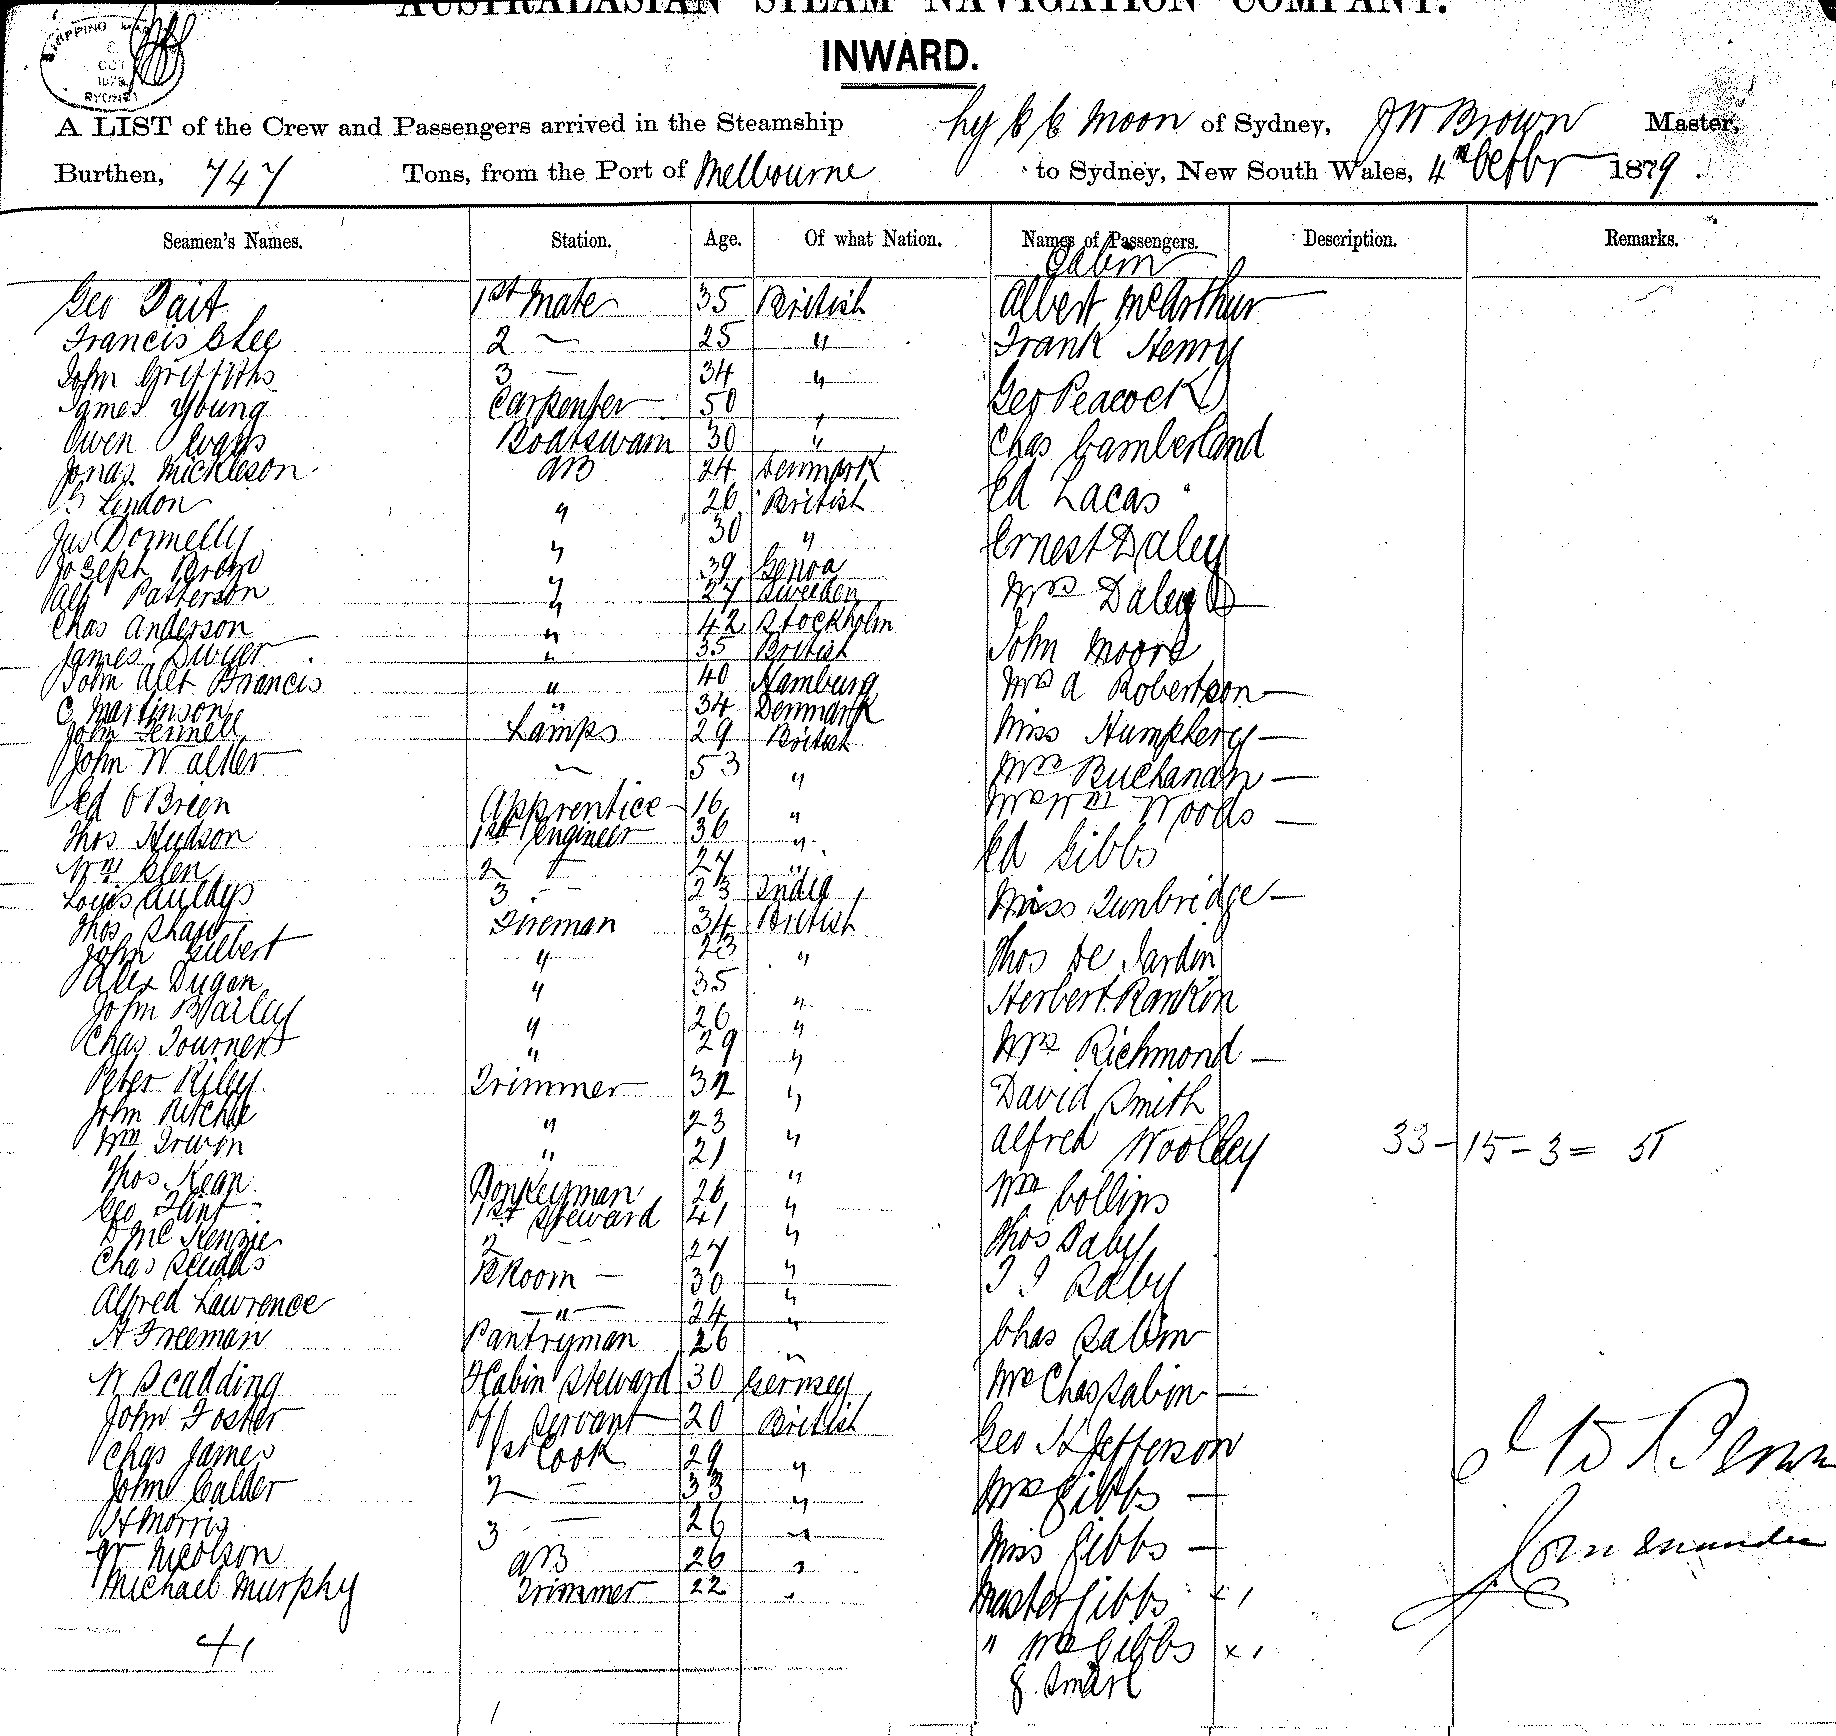 AUSTRALASIAN STEAM NAVIGATION COMPANY.
SHIPPING
OCT
SYDNEY
INWARD.
A LIST of the Crew and Passengers arrived in the Steamship Moon of Sydney, JW Brown Master,
Burthen, 747 Tons, from the Port of Melbourne to Sydney, New South Wales, 4th Octbr 1879.
Seamen's Names. Station. Age. Of what Nation. Names of Passengers. Description. Remarks.
Cabin
Geo Tait 1st Mate 35 British Albert McArthur
Francis C Lee 2 — 25 " Frank Henry
John Griffiths 3 — 34 " Geo Peacock
James Young Carpenter 50 " Chas Camberland
Owen Evans Boatswain 30 " Ed Lacas
Jonas Mickleson AB 24 Denmark Ernest Daley
Lindon " 26 British Mrs Daley
Jas Donnelly " 30 " John Moore
Joseph " 39 Genoa Mrs A Robertson —
Alf Patterson " 27 Sweeden Miss Humphery —
Chas Anderson " 42 Stockholm Mrs Buchanan —
James Dwyer " 35 British Mrs Wm Woods —
John Alex Francis " 40 Hamburg Ed Gibbs
C Martinson " 34 Denmark Miss Tunbridge —
John Fennell Lamps 29 British Thos De Jardin
John Walker — 53 " Herbert Rankin
Ed O'Brien Apprentice 16 " Mrs Richmond —
Thos Hudson 1st Engineer 36 " David Smith
Wm Glen 2 — 27 " Alfred Woolley 33 — 15 — 3 = 51
Louis 3 — 23 India Wm Collins
Thos Shaw Fireman 34 British Thos Saby
John Gilbert " 23 " Saby
Alex Dugan " 35 " Chas Sabin
John Bailey " 26 " Mrs Chas Sabin —
Chas Tourner " 29 " Geo H Jefferson
Peter Riley Trimmer 32 " Mrs Gibbs —
John Ritchie " 23 " Miss Gibbs —
Wm Irwin " 21 " Master Gibbs x 1
Thos Kean Donkeyman 26 " " Gibbs x 1
Geo Flint 1st Steward 41 " Smart
D McKenzie 2 — 27 "
Chas — 30 "
Alfred Lawrence — " — 24 "
H Freeman Pantryman 26 "
W Scadding Cabin Steward 30 Gernsey
John Foster Servant 20 British
Chas James 1st Cook 29 "
John Calder 2 — 33 "
H Morris 3 — 26 "
W Nicolson AB 26 "
Michael Murphy Trimmer 22 "
41
Commander